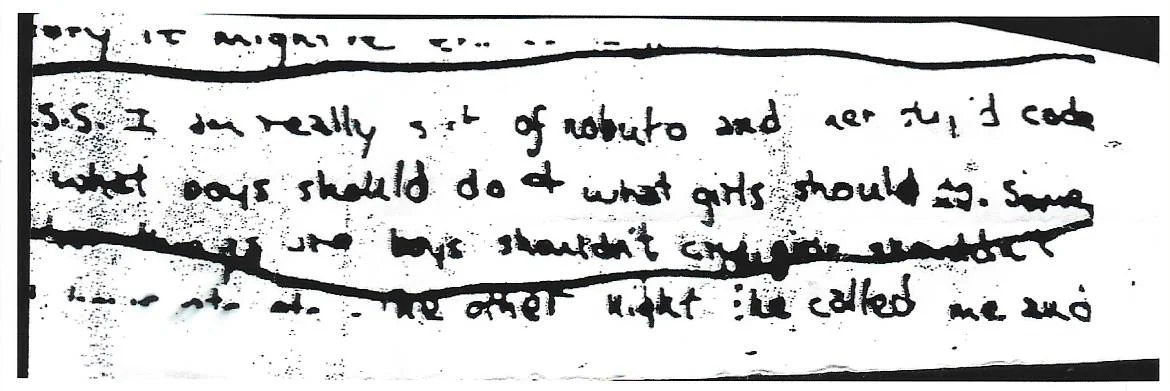 it might
S.S. I am really of nobuto and her stupid code
what boys should do & what girls should do. Some
things are boys shouldn't cry, girls shouldn't
the other night she called me and